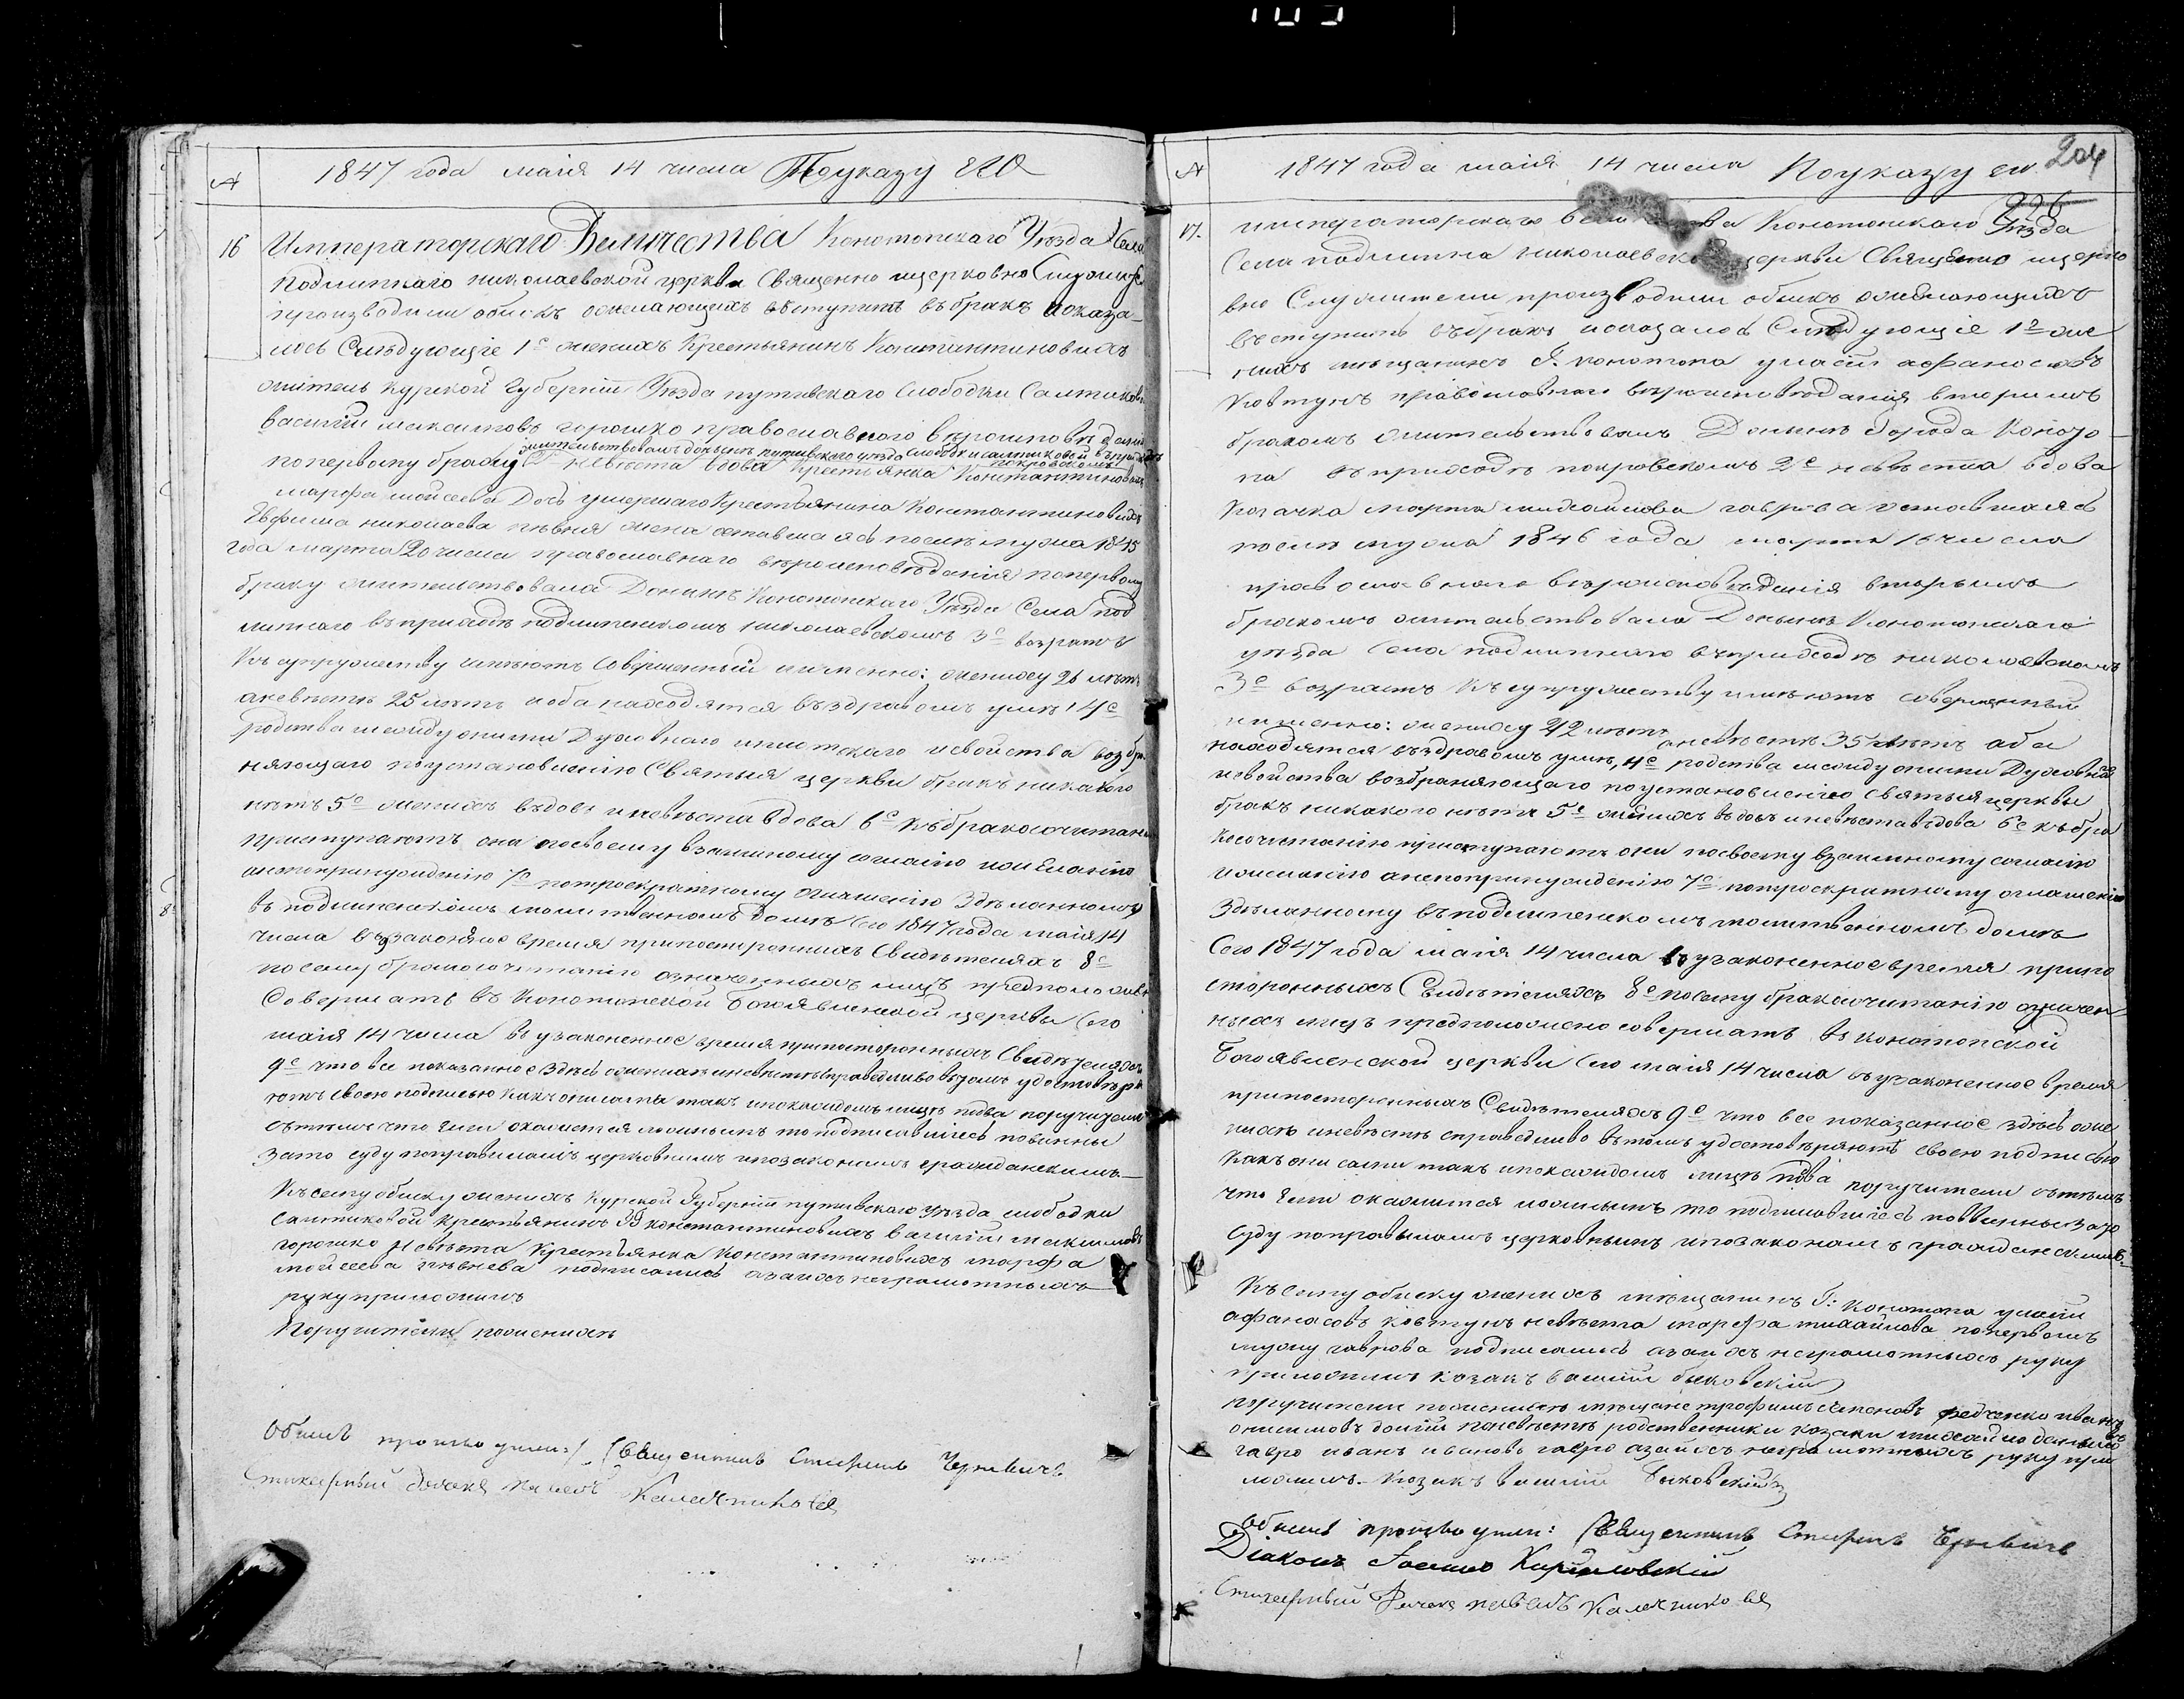 1847 года маія 14 числа По указу ЕГО
16 Императорскаго Величества Конотопскаго Уѣзда Села
Подлипнаго николаевской церкви Священно ицерковно Служите
производили обыскъ ожелающихъ въступить въ бракъ иоказа-
лось Слѣдующіе 1е женихъ Крестьянинъ Константиновичъ
житель курской Губерніи Уѣзда путивскаго Слободки Салтиков
василій максимовъ горошко православного вѣроисповѣдания
жительствовалъ донынѣ путивскаго уѣзда слободки салтиковой въ приходѣ
покровскомъ
поперьвому браку 2 невѣста вдова Крестьянка Константинович
марфа мойсеева Дочь умершаго Крестьянина Константиновича
Евфима николаева пѣвня жена оставшаясь послѣ мужа 1845
года марта 20 числа православнаго вѣроисповѣданія поперьвому
браку жительствовала Донинѣ Конотопскаго Уѣзда Села под
липнаго въ приходѣ подлипенскомъ николаевскомъ 3е возрастъ
Къ супружеству имѣютъ Совершенный именно: жениху 26 лѣтъ
аневѣстѣ 25 лѣтъ иоба находятся въ здравомъ умѣ 4е
родства между оними Духовнаго иплотскаго исвойства возбра
няющаго поустановленію Святыя церкви бракъ никакого
нѣтъ 5е женихъ вдовъ иневѣста вдова 6е Къ бракосочитанію
приступаютъ они посвоему взаимному согласію ижеланію
анепопринужденію 7е потроекратному оглашенію Здѣланному
въ подлипенскомъ молитвенномъ домѣ Сего 1847 года маія 14
числа въ узаконеное время припостороннихъ Свидѣтеляхъ 8е
посему бракосочитанію означенныхъ лицъ предположено
Совершать въ Конотопской Богоявленской церкви Сего
маія 14 числа въ узаконенное время припостороннихъ Свидѣтеляхъ
9е что все показанное Здѣсь оженихѣ иневѣстѣ справедливо въ томъ удостовѣря
ютъ своею подписью какъ они сами такъ ипокаждомъ лицѣ подва поручителя
сътѣмъ что если окажится ложнымъ то подписавшіесь повинны
зато суду поправиламъ церковнимъ ипозаконамъ гражданскимъ.—
Къ сему обыску женихъ Курской Губерніи путивскаго уѣзда слободки
салтиковой крестьянинъ константиновичъ василій максимовъ
горошко невѣста Крестьянка Константиновичъ марфа
мойсеева пѣвнева подписались азаихъ неграмотныхъ
руку приложилъ
Поручители поженихѣ
Обыскъ производили: Священникъ Стефанъ Черневичъ
Стихарный дьячекъ павелъ Калачниковъ
204
1847 года маія 14 числа По указу его
17. императорскаго величества Конотопскаго Уѣзда
Села подлипна николаевской церкви Священно ицерко
вно Служители производили обыскъ ожелающихъ
въступить въ бракъ иоказалось Слѣдующіе 1е же
нихъ мѣщанинъ Г. конотопа уласій афанасіевъ
Ковтунъ православнаго вѣроисповѣданія вторымъ
бракомъ жительствовалъ Донынѣ Города Коното
па въ приходѣ покровскомъ 2е невѣста вдова
Козачка марфа михайлова гаврова оставшаясь
послѣ мужа 1846 года марта 16 числа
православнаго вѣроисповѣданія вторымъ
бракомъ жительствовала Донынѣ Конотопскаго
уѣзда Села подлипнаго въ приходѣ николаевскомъ
3е возрастъ Къ супружеству имѣютъ совершенный
именно: жениху 42 лѣтъ аневѣстѣ 35 лѣтъ аба
находятся въздравомъ умѣ, 4е родства между оними Духовна
исвойства возбраняющаго поустановленію Святыя церкви
бракъ никакого нѣтъ 5е женихъ вдовъ иневѣста вдова 6е къ бра
косочитанію приступаютъ они посвоему взаимному согласію
ижеланію анепопринужденію 7е потроекратному оглашенію
Здѣланному въ подлипенскомъ молитвенномъ домѣ
Сего 1847 года маія 14 числа въ узаконенное время припо
стороннихъ Свидѣтеляхъ 8е посему бракосочитанію означен
ныхъ лицъ предположено совершать въ конотопской
Богоявленской церкви Сего маія 14 числа въ узаконенное время
припостороннихъ Свидѣтеляхъ 9е что все показанное здѣсь оже
нихѣ иневѣстѣ справедливо въ томъ удостовѣряютъ своею подписью
Какъ они сами такъ ипокаждомъ лицѣ подва поручители сътѣмъ
что если окажится ложнымъ то подписавшіесь повинны зато
Суду поправыламъ церковнымъ ипозаконамъ гражданскимъ.
Къ сему обыску женихъ мѣщанинъ Г: Конотопа уласій
афанасовъ ковтунъ невѣста марфа михайлова поперьвомъ
мужу гаврова подписались азаихъ неграмотныхъ руку
приложилъ козакъ василій быковскій
поручители поженихѣ мѣщане трофимъ семеновъ федченко иванъ
онисимовъ долгій поневѣстѣ родственники козаки михайло даниловъ
гавро иванъ ивановъ гавро азаихъ неграмотныхъ руку при
ложилъ козакъ василій Быковскій
Обыскъ производили: Священникъ Стефанъ Черневичъ
Діаконъ Іоаннъ
Стихарный Дьячекъ павелъ Калачниковъ